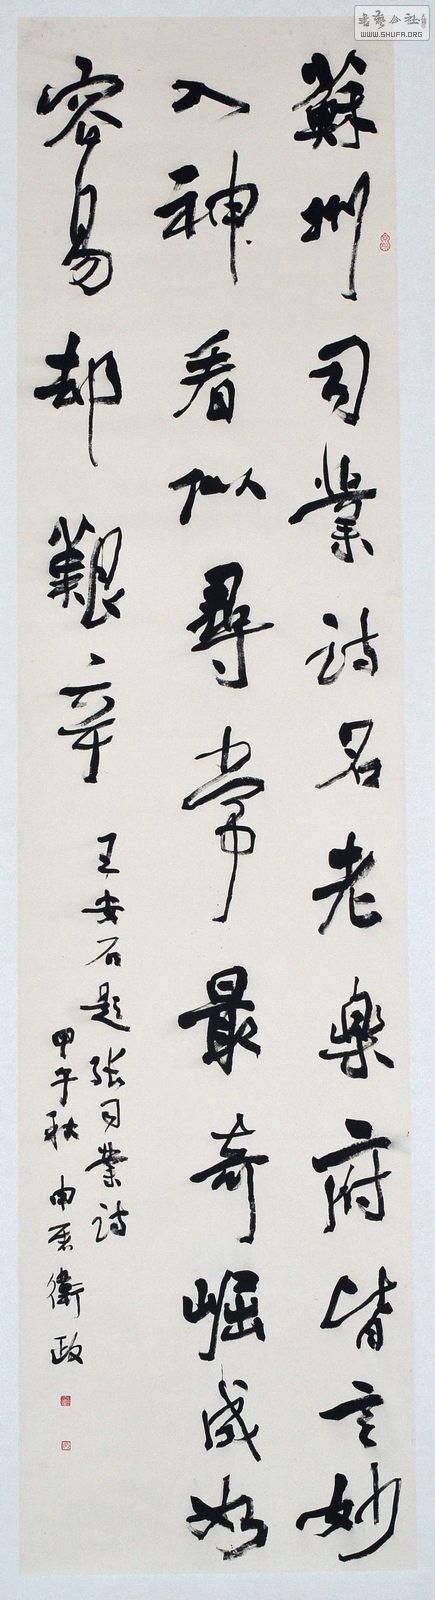 蘇州司業詩名老樂府皆言妙
入神看似尋常最奇崛成如
容易却艱辛
王安石題張司業詩
甲午秋申石衛政
書藝公社
WWW.SHUFA.ORG